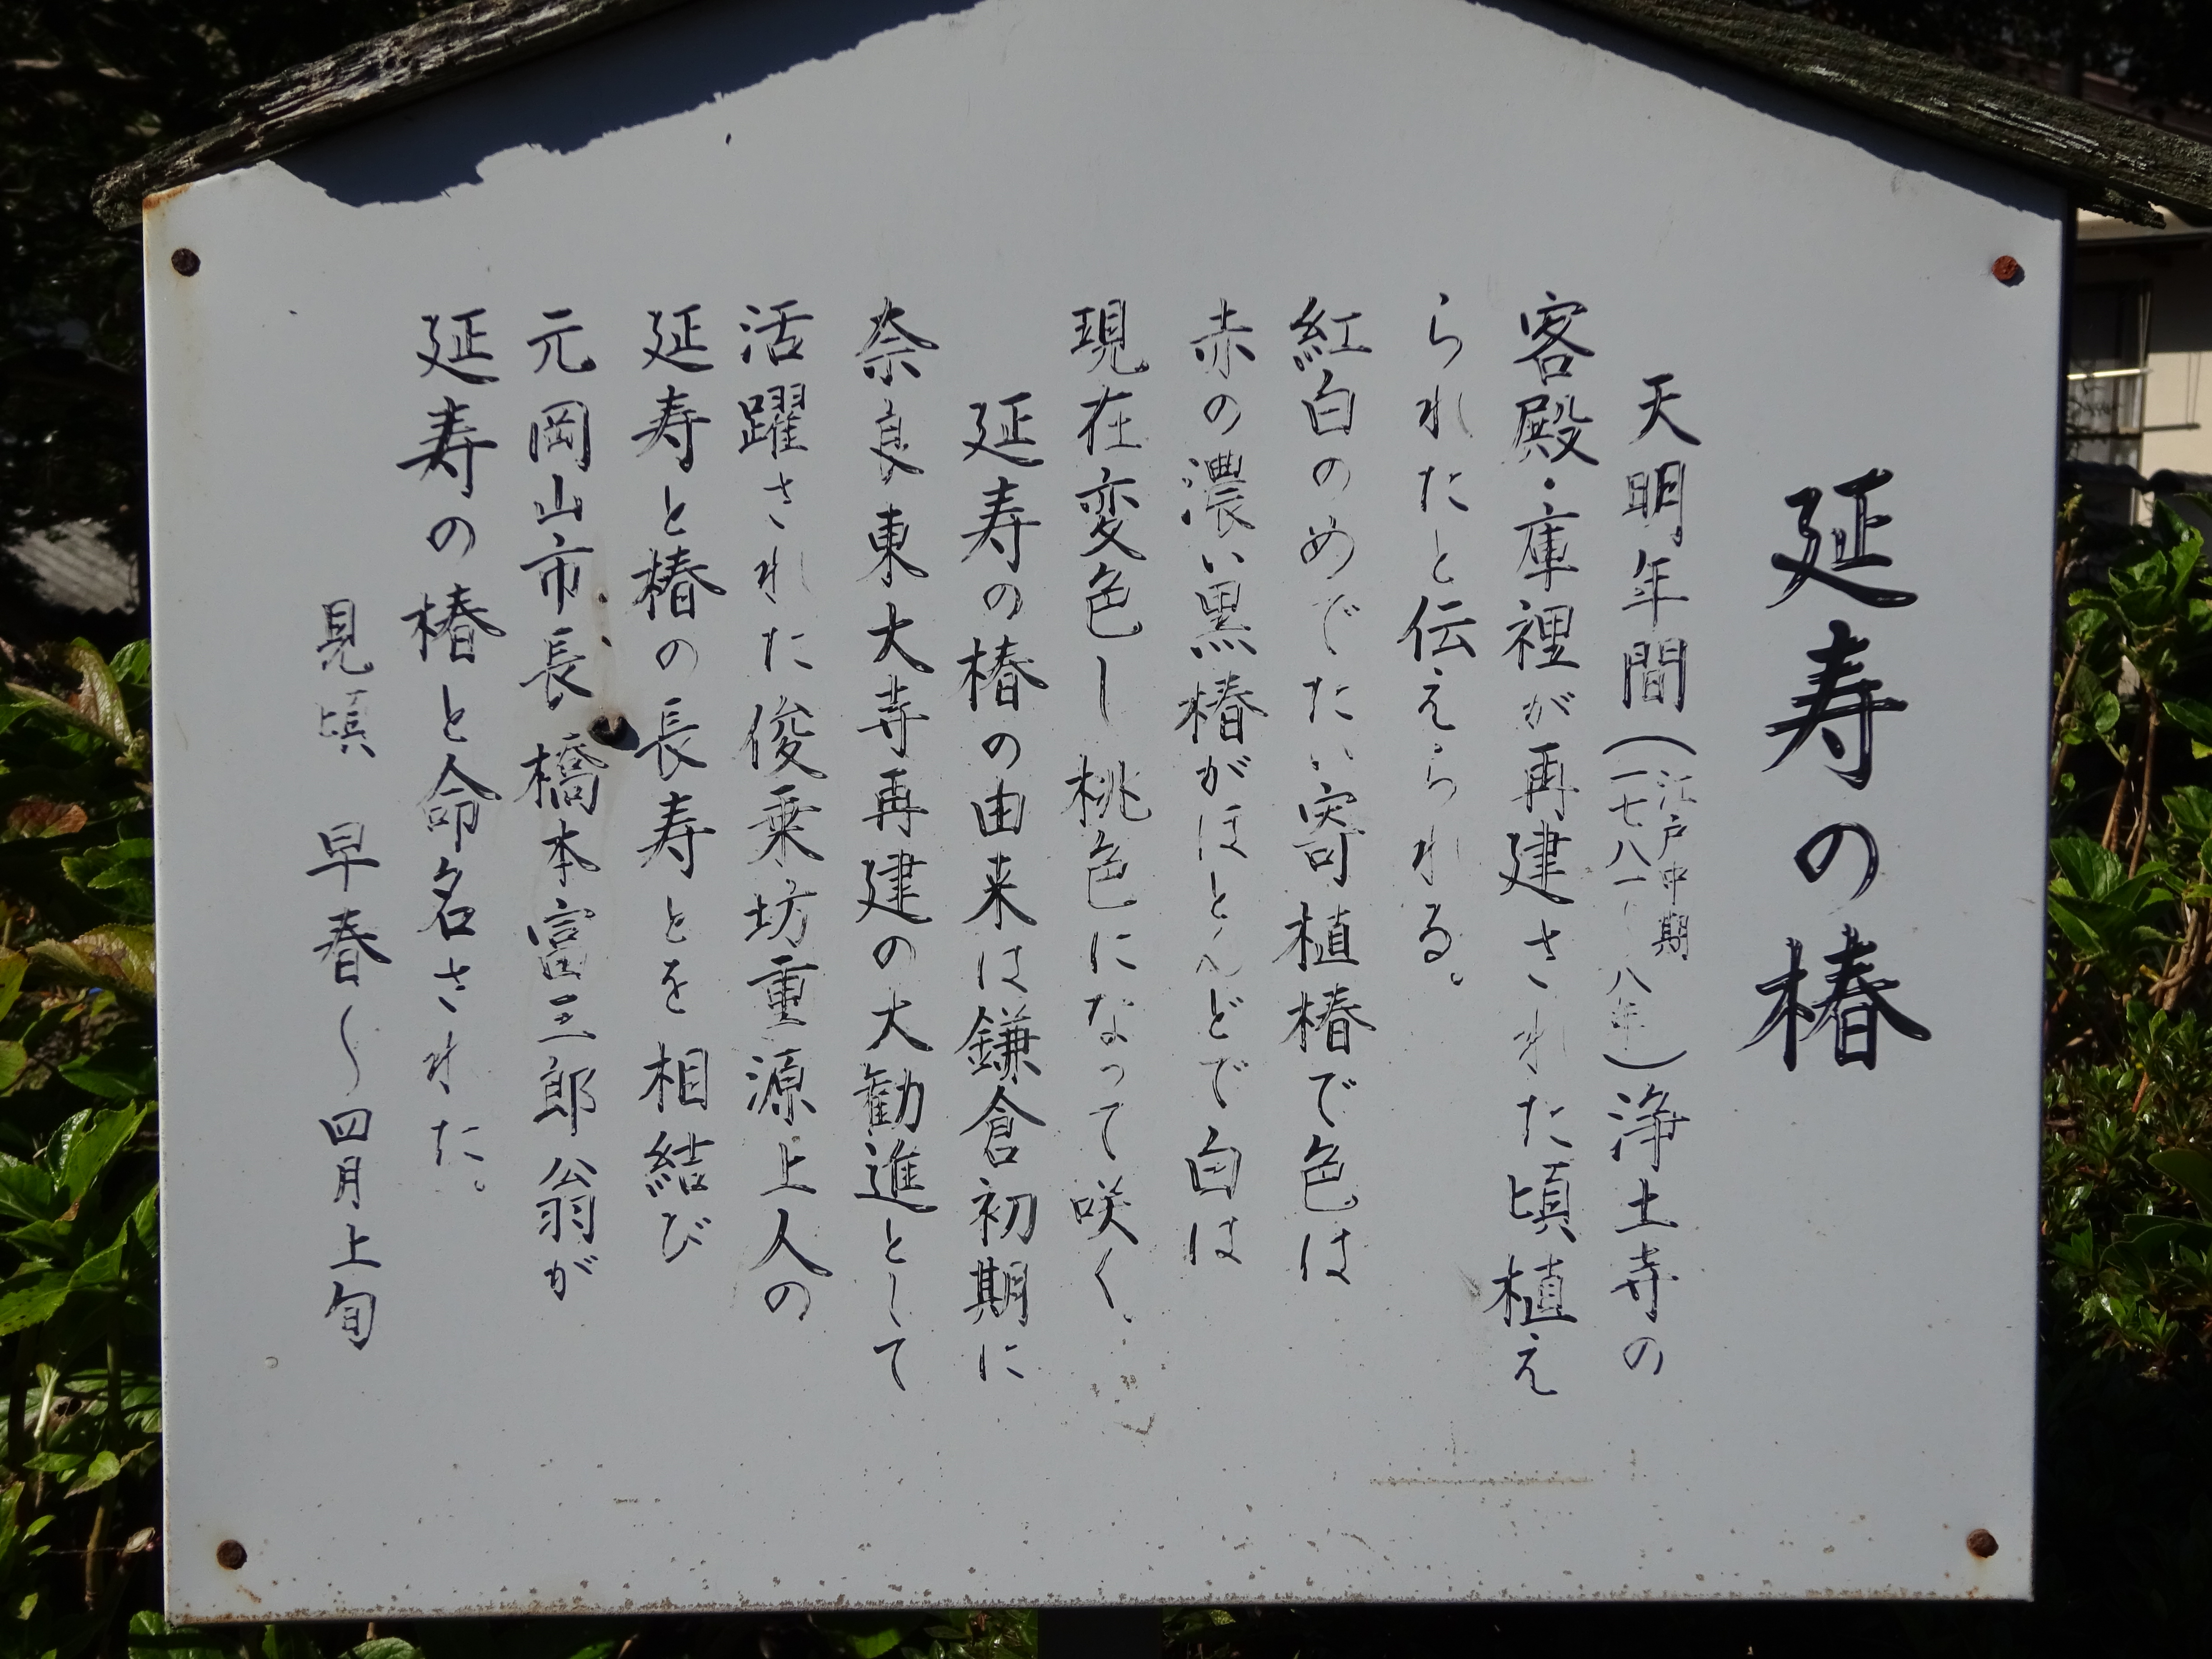 延寿の椿
天明年間(江戸中期 一七八一〜八年)浄土寺の
客殿・庫裡が再建された頃植え
られたと伝えられる。
紅白のめでたい寄植椿で色は
赤の濃い黒椿がほとんどで白は
現在変色し桃色になって咲く。
延寿の椿の由来は鎌倉初期に
奈良東大寺再建の大勧進として
活躍された俊乗坊重源上人の
延寿と椿の長寿とを相結び
元岡山市長 橋本富三郎翁が
延寿の椿と命名された。
見頃 早春〜四月上旬